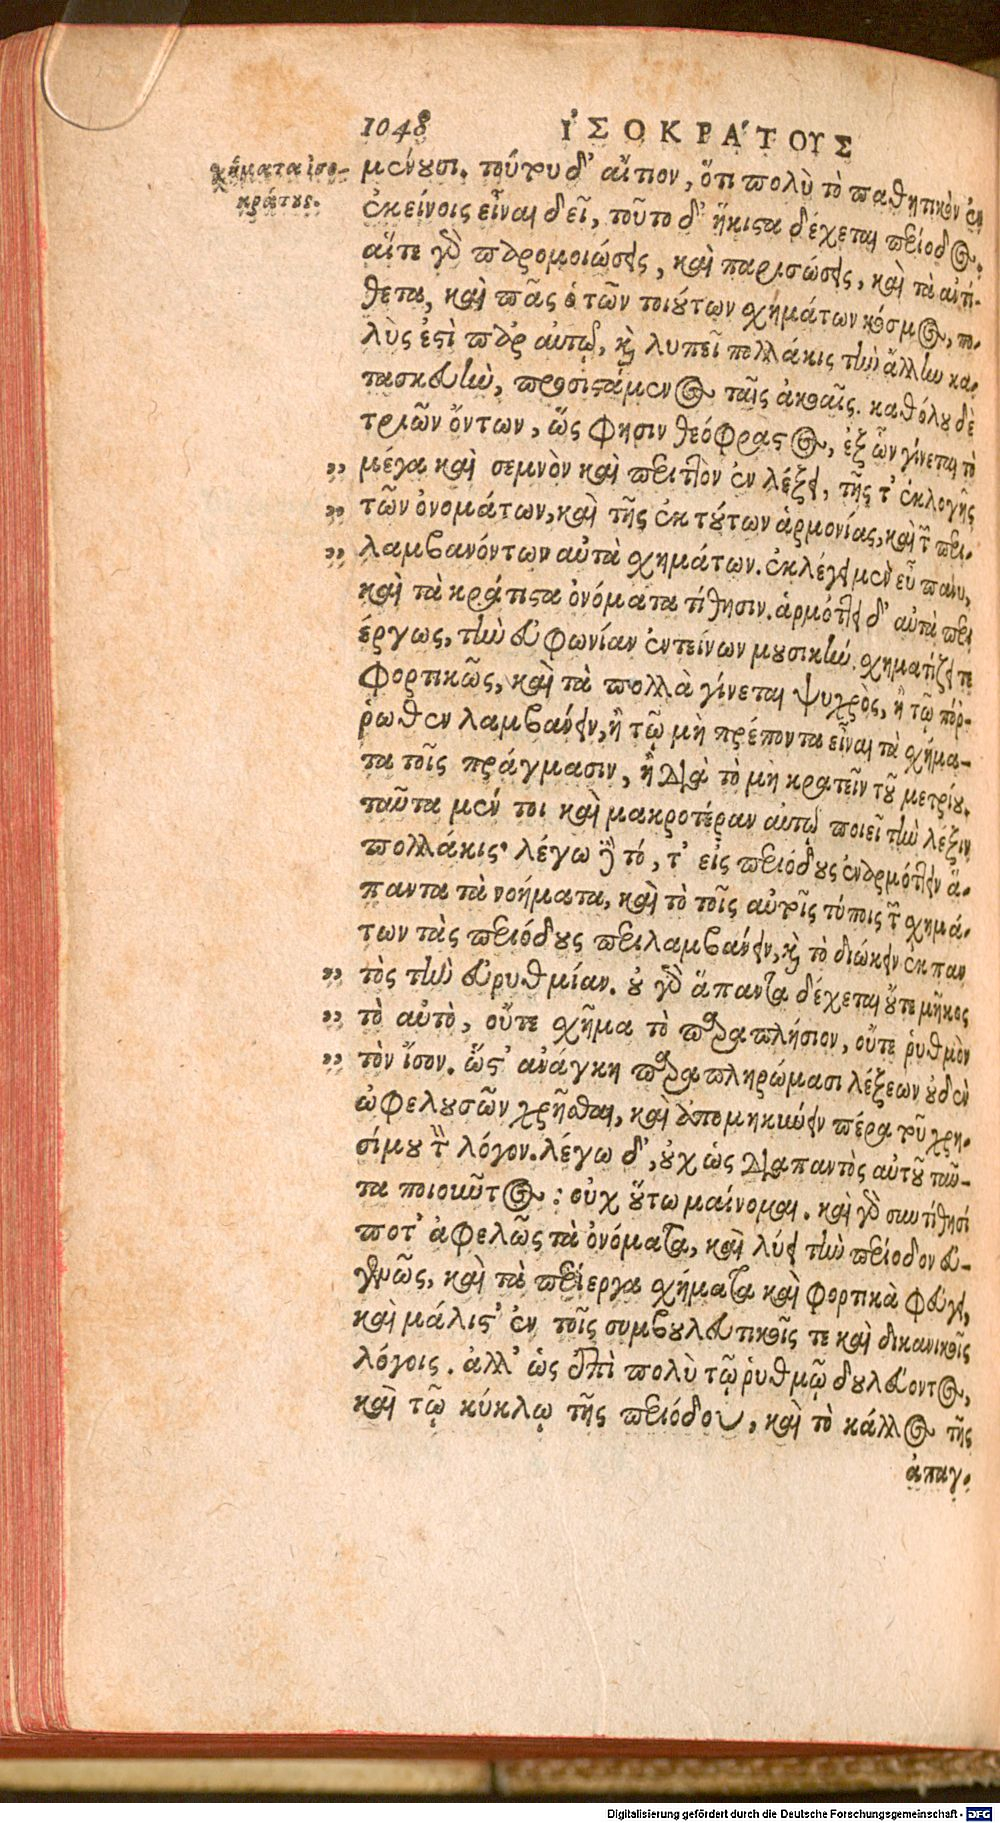 1048 ἸΣΟΚΡΆΤΟΥΣ
χήματα ἰσο-
κράτους.
μένουσι. τούτου δ' αἴτιον, ὅτι πολὺ τὸ παθητικὸν ἐν
ἐκείνοις εἶναι δεῖ, τοῦτο δ' ἥκιστα δέχεται περίοδος.
αἵτε γὰρ παρομοιώσεις, καὶ παρισώσεις, καὶ τὰ ἀντί-
θετα, καὶ πᾶς ὁ τῶν τοιούτων σχημάτων κόσμος, πο-
λὺς ἐστὶ παρ' αὐτῷ, καὶ λυπεῖ πολλάκις τὴν ἄλλην κα-
τασκευὴν, προσιστάμενος ταῖς ἀκοαῖς. καθόλου δὲ
τριῶν ὄντων, ὥς φησιν θεόφραστος, ἐξ ὧν γίνεται τὸ
„ μέγα καὶ σεμνὸν καὶ περιττὸν ἐν λέξει, τῆς τ' ἐκλογῆς
„ τῶν ὀνομάτων, καὶ τῆς ἐκ τούτων ἁρμονίας, καὶ τῶν περι-
„ λαμβανόντων αὐτὰ σχημάτων. ἐκλέγει μὲν εὖ πάνυ,
καὶ τὰ κράτιστα ὀνόματα τίθησιν. ἁρμόττει δ' αὐτὰ περι
έργως, τὴν εὐφωνίαν ἐντείνων μουσικήν. σχηματίζει τε
φορτικῶς, καὶ τὰ πολλὰ γίνεται ψυχρὸς, ἢ τῷ πόρ-
ρωθεν λαμβάνειν, ἢ τῷ μὴ πρέποντα εἶναι τὰ σχήμα-
τα τοῖς πράγμασιν, ἢ διὰ τὸ μὴ κρατεῖν τοῦ μετρίου.
ταῦτα μέν τοι καὶ μακροτέραν αὐτῷ ποιεῖ τὴν λέξιν
πολλάκις· λέγω δὲ τό, τ' εἰς περιόδους ἐναρμόττειν ἅ-
παντα τὰ νοήματα, καὶ τὸ τοῖς αὐτοῖς τύποις τῶν σχημά-
των τὰς περιόδους περιλαμβάνειν, καὶ τὸ διώκειν ἐκ παν
„ τὸς τὴν εὐρυθμίαν. οὐ γὰρ ἅπαντα δέχεται οὔτε μῆκος
„ τὸ αὐτὸ, οὔτε σχῆμα τὸ παραπλήσιον, οὔτε ῥυθμὸν
„ τὸν ἴσον. ὥστ' ἀνάγκη παραπληρώμασι λέξεων οὐδὲν
ὠφελουσῶν χρῆσθαι, καὶ ἀπομηκύνειν πέρα τοῦ χρη-
σίμου τὸν λόγον. λέγω δ', οὐχ ὡς διαπαντὸς αὐτοῦ ταῦ-
τα ποιοῦντος: οὐχ οὕτω μαίνομαι. καὶ γὰρ συντίθησί
ποτ' ἀφελῶς τὰ ὀνόματα, καὶ λύει τὴν περίοδον εὐ-
γενῶς, καὶ τὰ περίεργα σχήματα καὶ φορτικὰ φεύγει,
καὶ μάλιστ' ἐν τοῖς συμβουλευτικοῖς τε καὶ δικανικοῖς
λόγοις. ἀλλ' ὡς ἐπὶ πολὺ τῷ ῥυθμῷ δουλεύοντος,
καὶ τῷ κύκλῳ τῆς περιόδου, καὶ τὸ κάλλος τῆς
ἀπαγ-
Digitalisierung gefördert durch die Deutsche Forschungsgemeinschaft - DFG